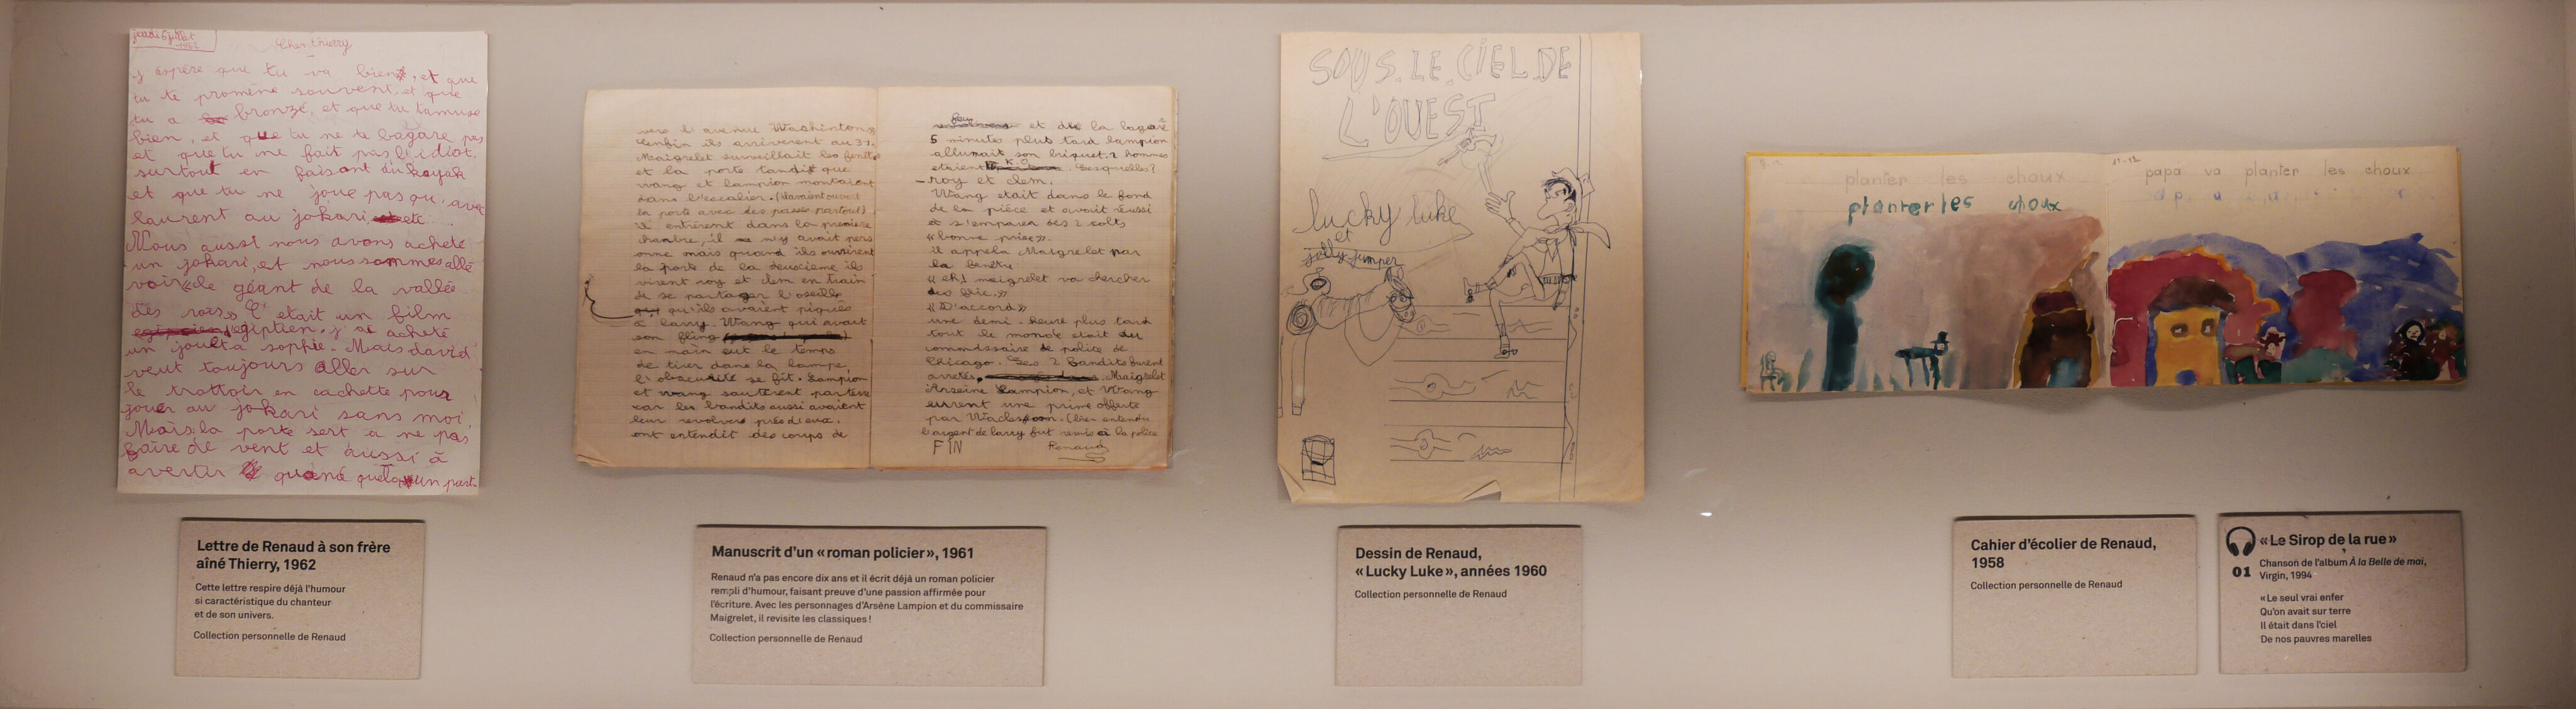 jeudi 5 juillet
1962
Cher thierry
j'espère que tu va bien, et que
tu te promène souvent, et que
tu a bronzé, et que tu t'amuse
bien, et que tu ne te bagare pas
et que tu ne fait pas l'idiot.
surtout en faisant du kayak
et que tu ne joue pas qu'avec
laurent au jokari
Nous aussi nous avons acheté
un jokari, et nous sommes allé
voir « le géant de la vallée
des rois » C'etait un film
egiptien, j'ai acheté
un jouet a sophie. Mais david
veut toujours aller sur
le trottoir en cachette pour
jouer au jokari sans moi.
Mais la porte sert a ne pas
faire de vent et aussi à
avertir quand quelqu'un part
vers l'avenue Washintons
enfin ils arrivèrent au 37.
Maigrelet surveillait les fenêtres
et la porte tandis que
wang et lampion montaient
dans l'escalier. (ils avaient ouvert
la porte avec des passes partout)
il entrèrent dans la première
chambre, il n'y avait pers
onne mais quand ils ouvrirent
la porte de la deuxième ils
virent roy et clem en train
de se partager l'oseille
qu'ils avaient piqués
à larry. Wang qui avait
son fling
en main eut le temps
de tirer dans la lampe,
l'obscurité se fit. Lampion
et wang sautèrent par terre
car les bandits aussi avaient
leur revolver près d'eux.
ont entendit des coups de
feu et de la bagare
5 minutes plus tard lampion
allumait son briquet. 2 hommes
etaient K.O. Lesquelles?
– roy et clem.
Wang etait dans le fond
de la pièce et avait réussi
a s'emparer des 2 colts
« bonne prise ».
il appela Maigrelet par
la fenêtre
« eh! maigrelet va chercher
des flic. »
« D'accord »
une demi-heure plus tard
tout le monde etait au
commissaire de police de
Chicago. Les 2 Bandits furent
arretés. Maigrelet
Arseine Lampion, et Wang
eurrent une prime offerte
par (bien entendu
l'argent de larry fut remis à la police
FIN Renaud
SOUS LE CIEL DE
L'OUEST
lucky luke
et
jolly-jumper
planter les choux
planter les choux
11-12
papa va planter les choux
Lettre de Renaud à son frère
aîné Thierry, 1962
Cette lettre respire déjà l'humour
si caractéristique du chanteur
et de son univers.
Collection personnelle de Renaud
Manuscrit d'un « roman policier », 1961
Renaud n'a pas encore dix ans et il écrit déjà un roman policier
rempli d'humour, faisant preuve d'une passion affirmée pour
l'écriture. Avec les personnages d'Arsène Lampion et du commissaire
Maigrelet, il revisite les classiques !
Collection personnelle de Renaud
Dessin de Renaud,
« Lucky Luke », années 1960
Collection personnelle de Renaud
Cahier d'écolier de Renaud,
1958
Collection personnelle de Renaud
01
« Le Sirop de la rue »
Chanson de l'album À la Belle de mai,
Virgin, 1994
« Le seul vrai enfer
Qu'on avait sur terre
Il était dans l'ciel
De nos pauvres marelles